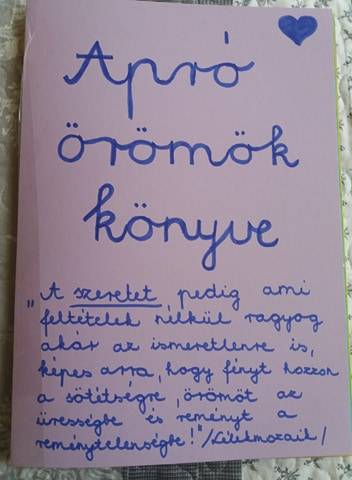 Apró
örömök
könyve
„A szeretet pedig ami
feltételek nélkül ragyog
akár az ismeretlenre is,
képes arra, hogy fényt hozzon
a sötétségre, örömöt az
ürességbe és reményt a
reménytelenségbe!"/Lélekmozaik/